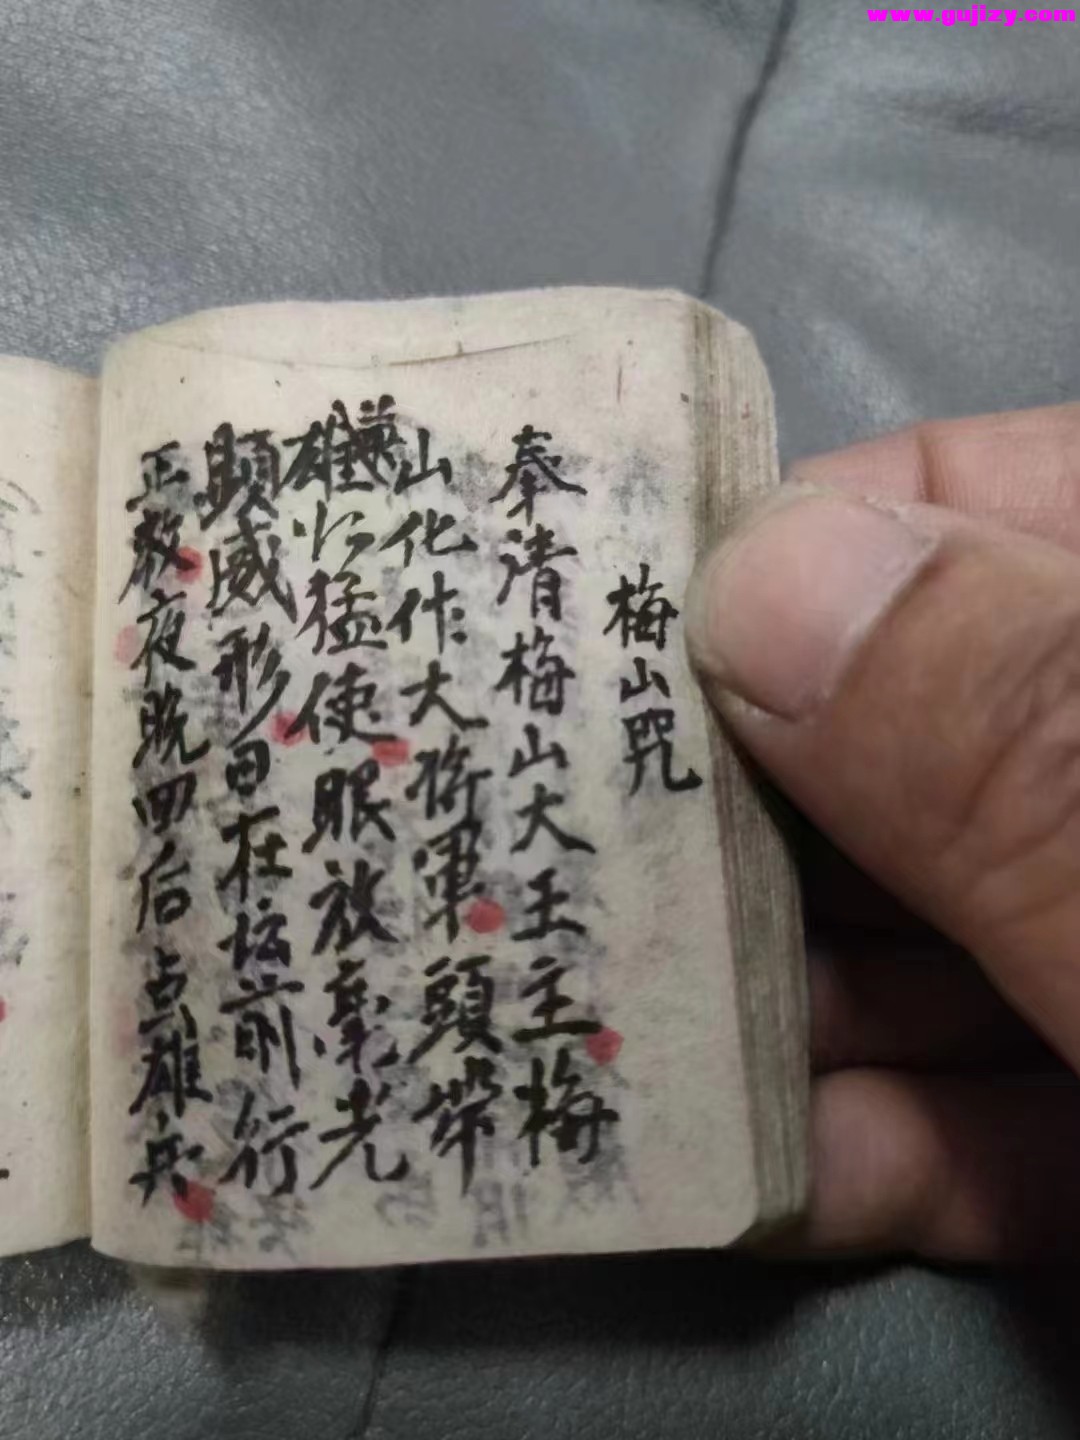 www.gujizy.com
梅山咒
奉清梅山大王主梅
山化作大将軍頭帶
雄心猛使眼放毫光
顕威形日在坛前行
正教夜晚四后点雄兵